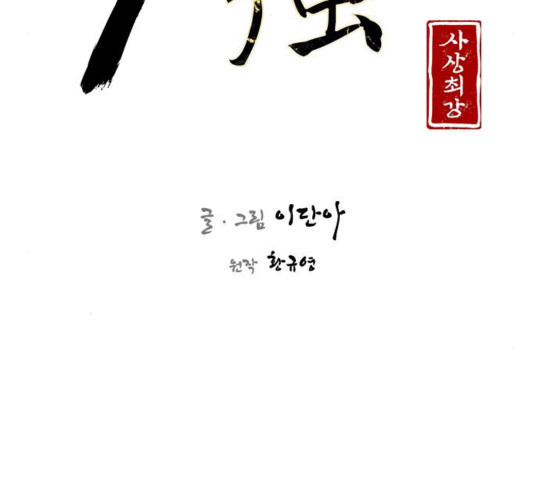 사상최강
글·그림 이단아
원작 황규영